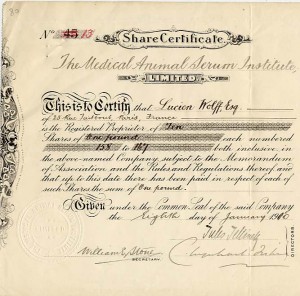 No 45 13
Share Certificate
The Medical Animal Serum Institute,
LIMITED.
This is to Certify that Lucien Wolff, Esq.
of 23 Rue Taitbout, Paris, France
is the Registered Proprietor of Ten
Shares of One pound each numbered
158 to 167 both inclusive in
the above-named Company subject to the Memorandum
of Association and the Rules and Regulations thereof, and
that up to this date there has been paid in respect of each of
such Shares the sum of One pound.
Given under the Common Seal of the said Company
the Eighth day of January 1910
William E. Stone
SECRETARY.
DIRECTORS